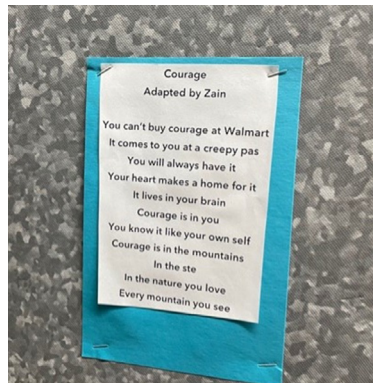 Courage
Adapted by Zain
You can't buy courage at Walmart
It comes to you at a creepy pas
You will always have it
Your heart makes a home for it
It lives in your brain
Courage is in you
You know it like your own self
Courage is in the mountains
In the ste
In the nature you love
Every mountain you see